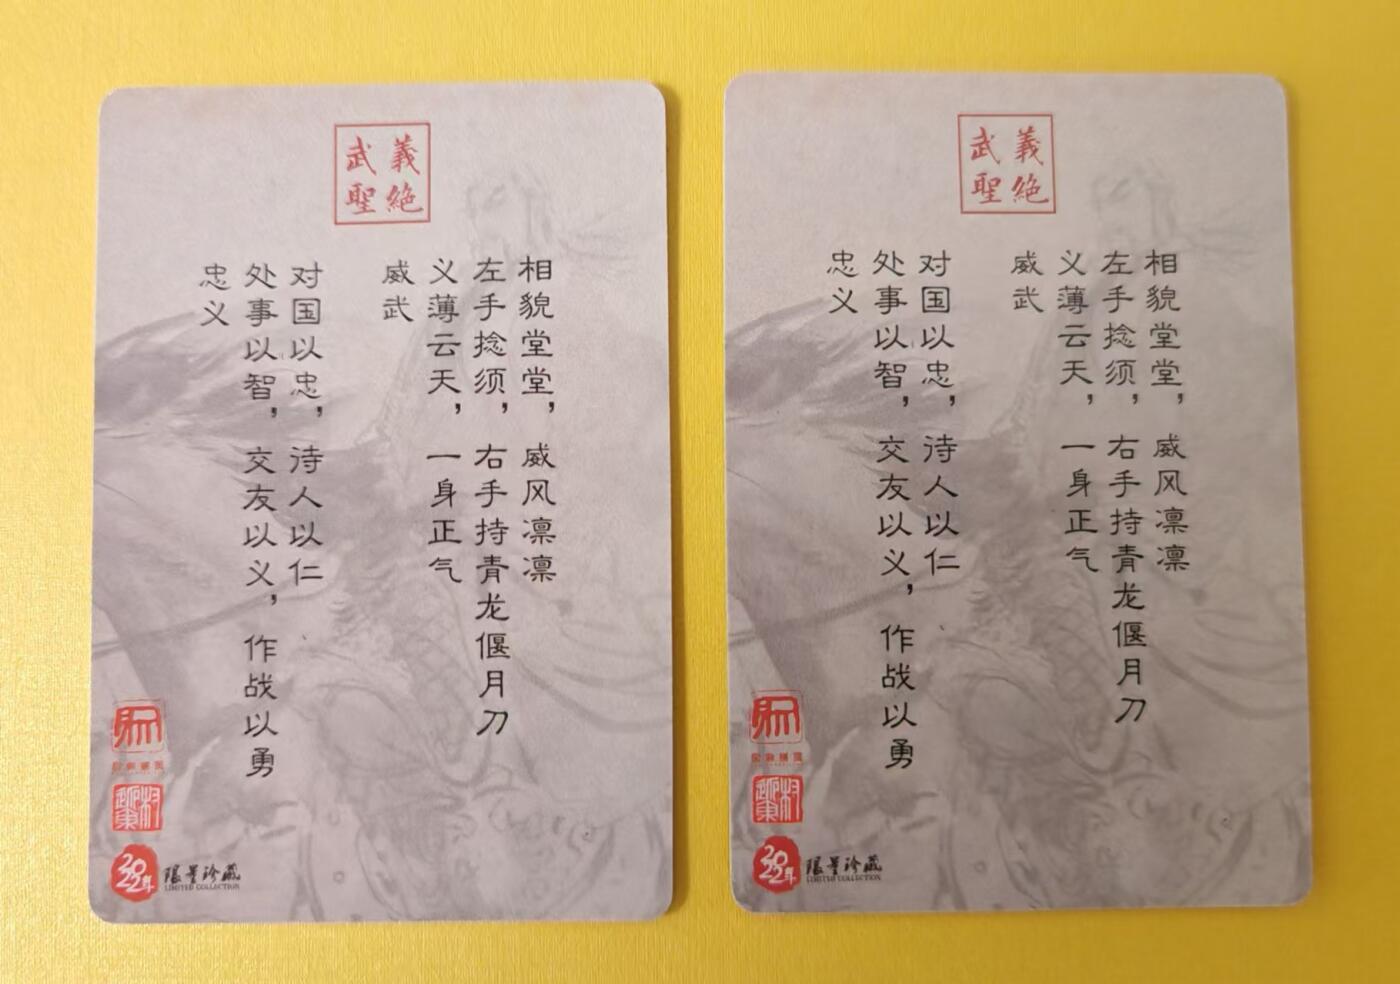 義絶
武聖
相貌堂堂，威风凛凛
左手捻须，右手持青龙偃月刀
义薄云天，一身正气
威武
对国以忠，待人以仁
处事以智，交友以义，作战以勇
忠义
2022年
限量珍藏
LIMITED COLLECTION
義絶
武聖
相貌堂堂，威风凛凛
左手捻须，右手持青龙偃月刀
义薄云天，一身正气
威武
对国以忠，待人以仁
处事以智，交友以义，作战以勇
忠义
2022年
限量珍藏
LIMITED COLLECTION